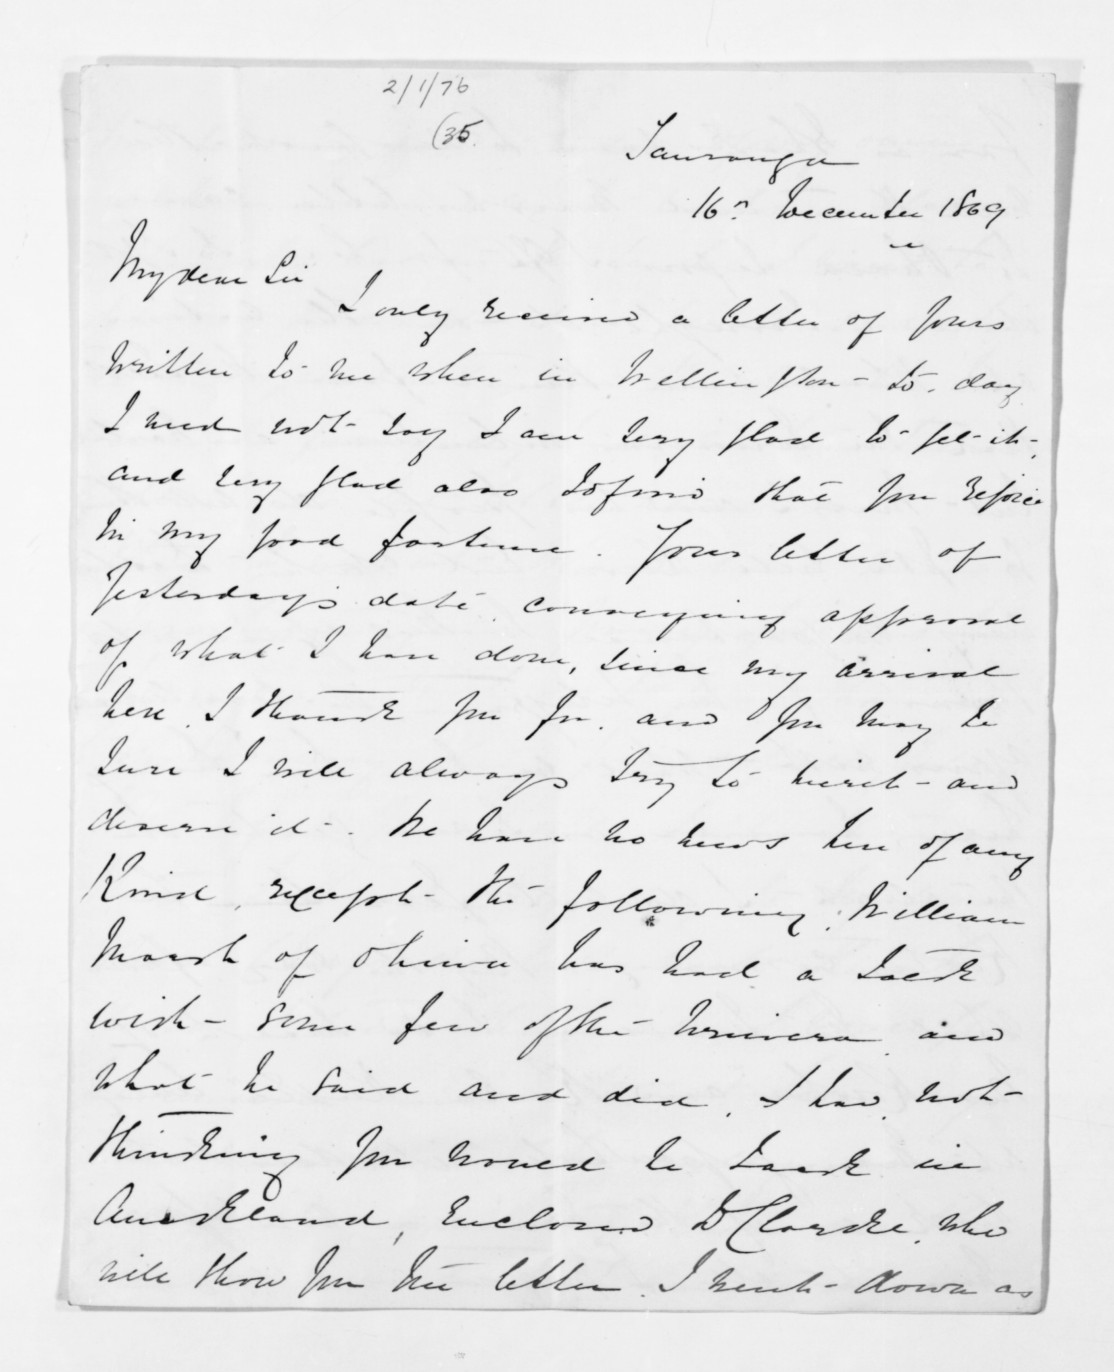 2/1/76
(35.
Tauranga
16th December 1869
My dear Sir
I only received a letter of yours
written to me when in Wellington - to-day
I need not say I am very glad to get it,
and very glad also to find that you rejoice
in my good fortune. Your letter of
Yesterday's date, conveying approval
of what I have done, since my arrival
here, I thank you for, and you may be
sure I will always try to merit - and
deserve it. We have no news here of any
Kind, except the following; William
Marsh of Ohiwa has had a talk
with some few of the Urewera and
what he said and did, I have, not
thinking you would be back in
Auckland, enclosed to Clarke, who
will show you the letter. I went down as